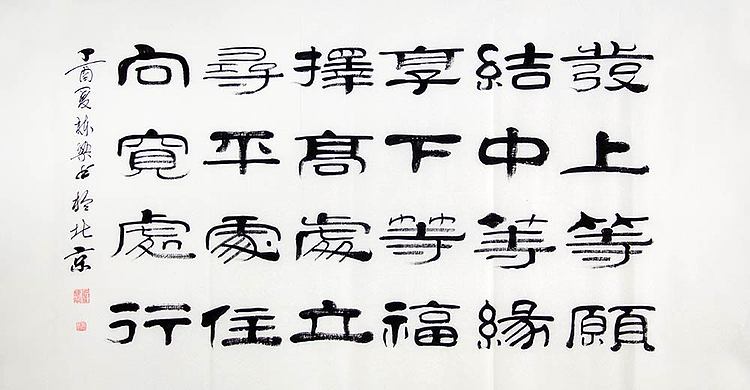 發上等願
結中等緣
享下等福
擇高處立
尋平處住
向寬處行
丁酉夏 書於北京